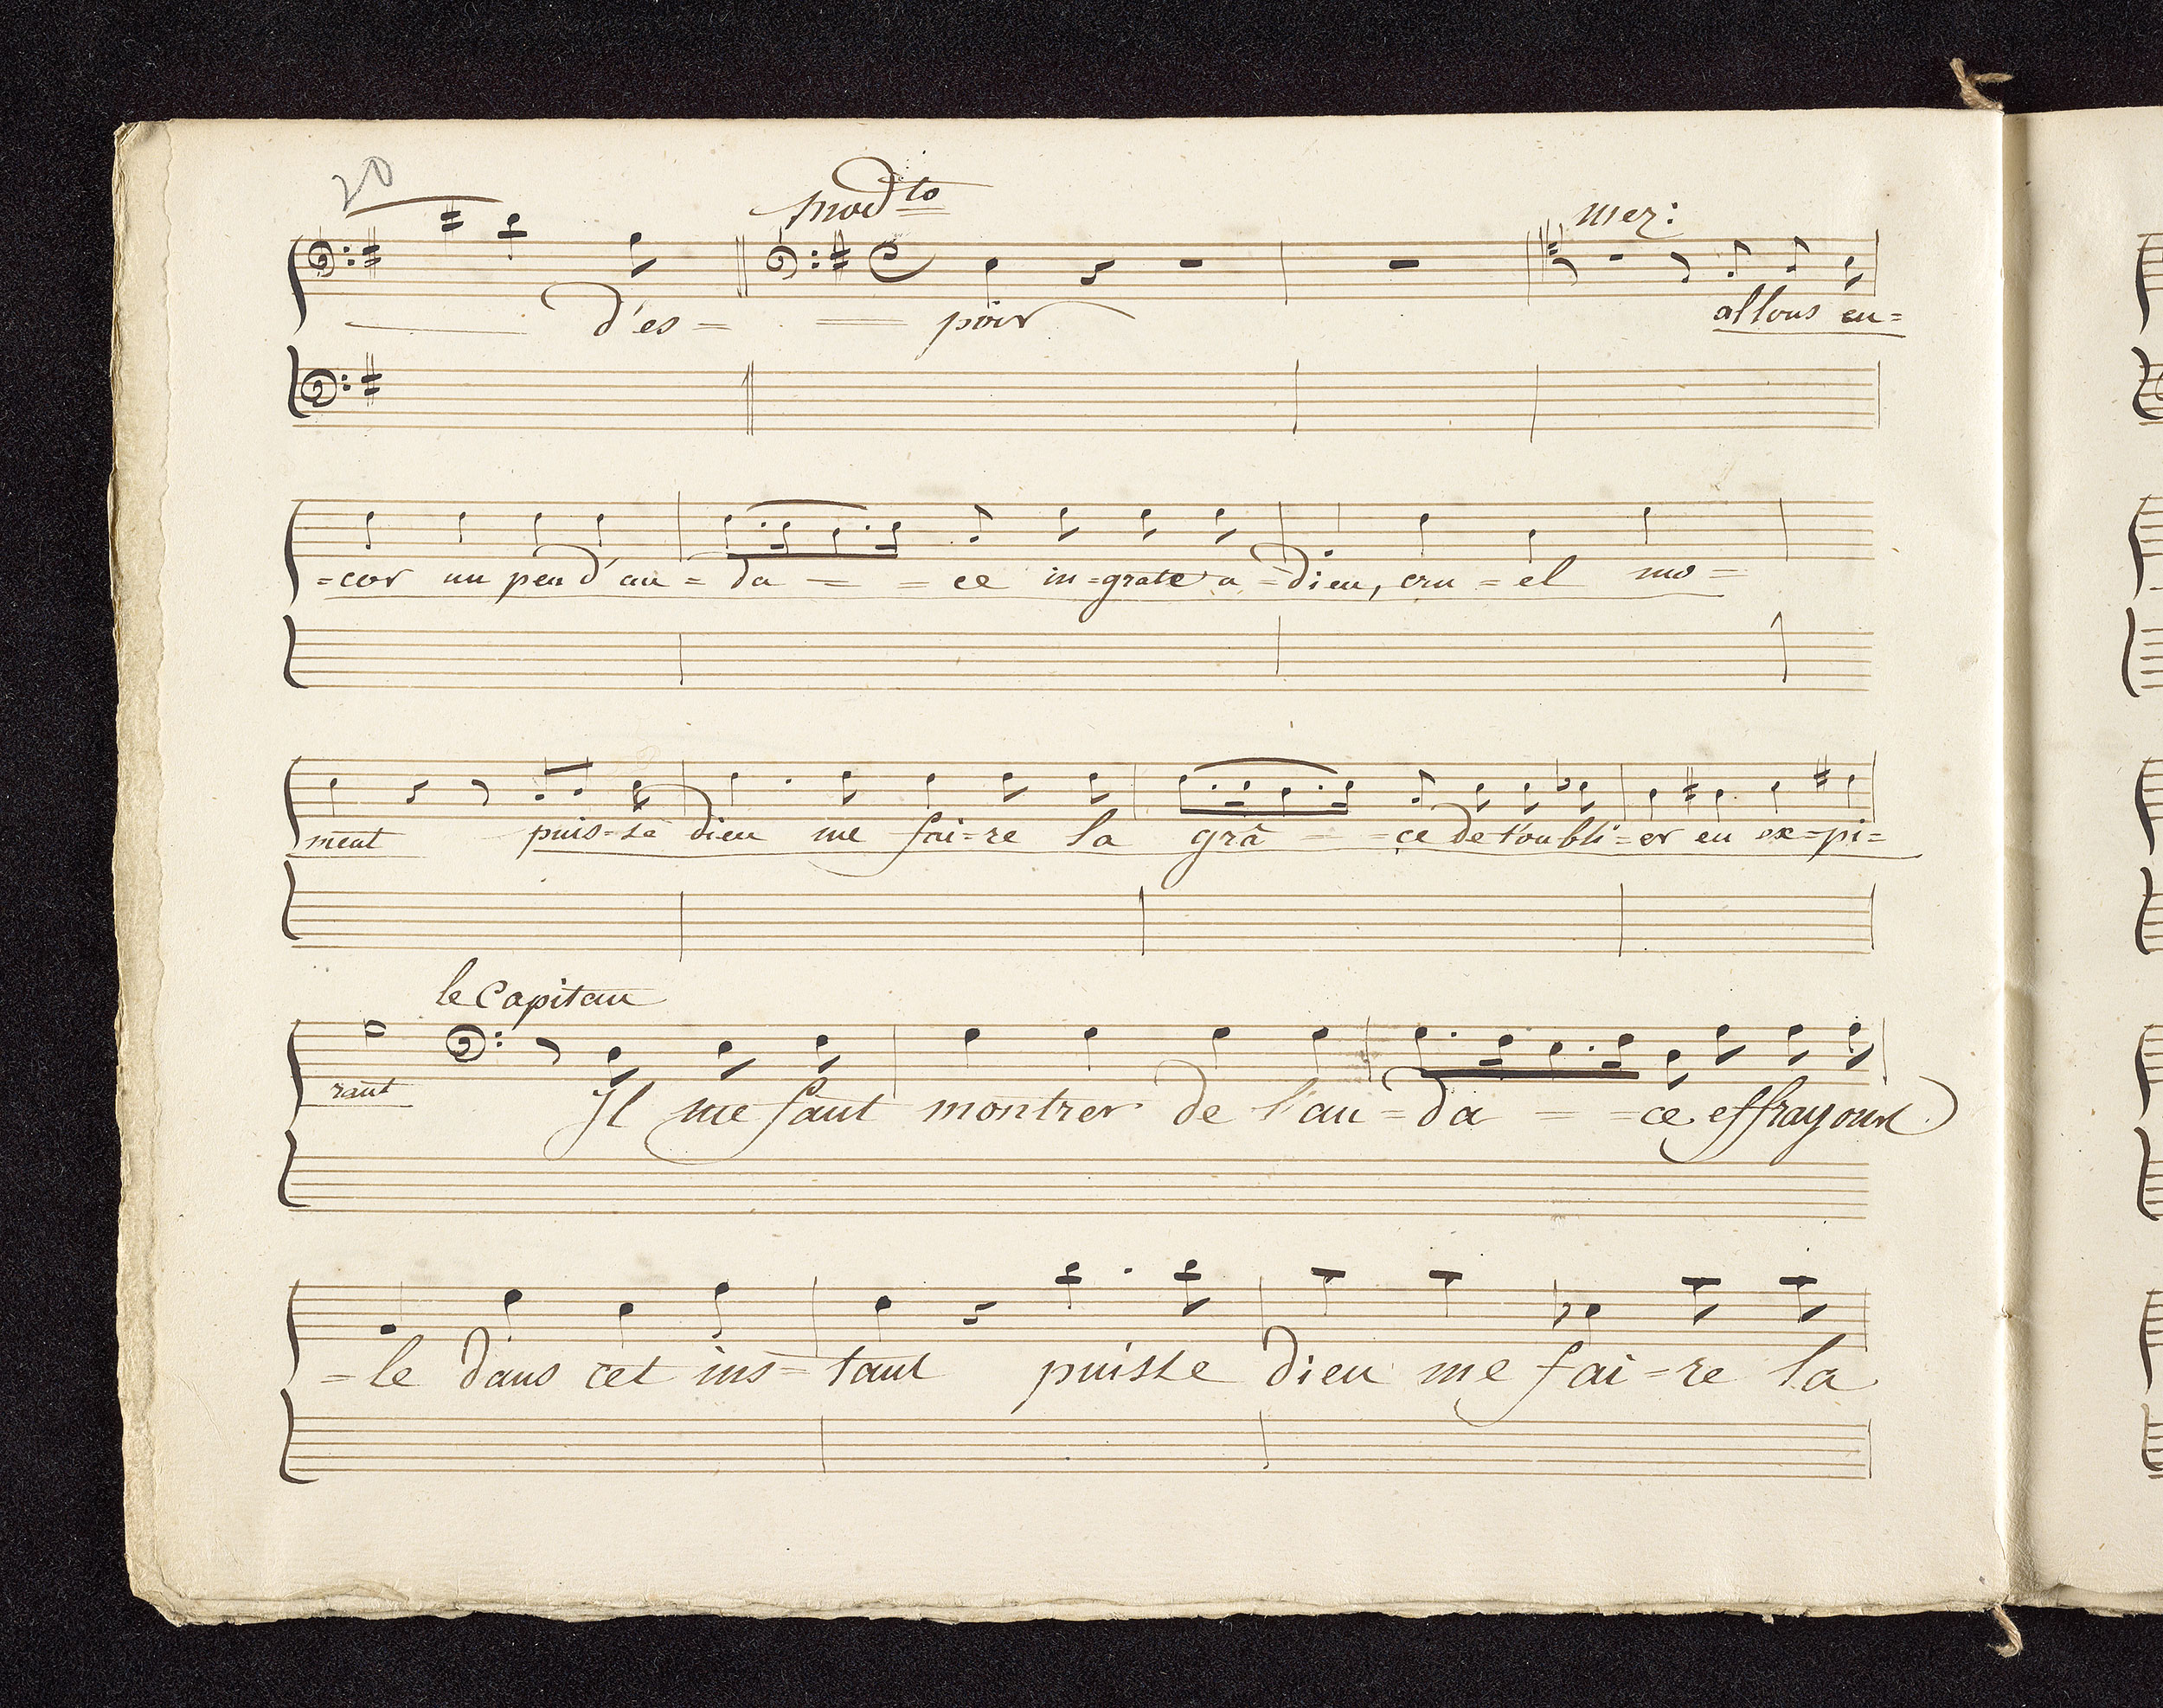 20
modto
mez:
d'es = = poir
allons en=
=cor un peu d'au = da = = ce in=grate a=dieu, cru=el mo=
ment puis=se dieu me fai=re la grâ = =ce de t'oubli=er en ex=pi=
le Capitan
rant Il me faut montrer de l'au=da = =ce effrayons
=le dans cet ins=tant puisse dieu me fai=re la